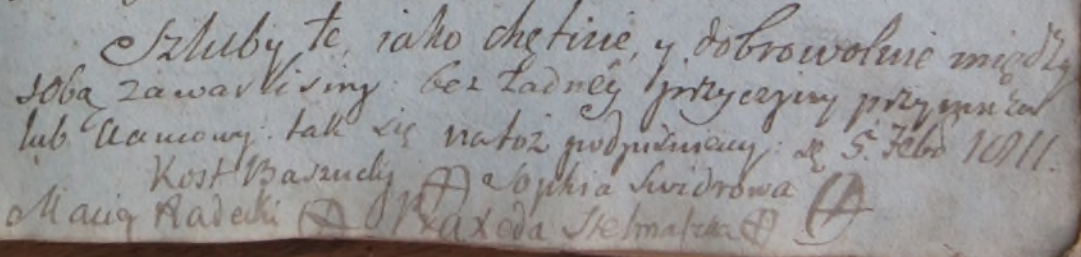 Szluby te, iako chętnie, y dobrowolnie między
sobą zawarlismy: bez żadney przyczyny przymusza
lub namowy: tak się na toż podpisuiemy: d 5. Febr 1811.
Kost Baszucky Sophia Swidrowa
Maciey Radecki Praxeda Stelmaszka